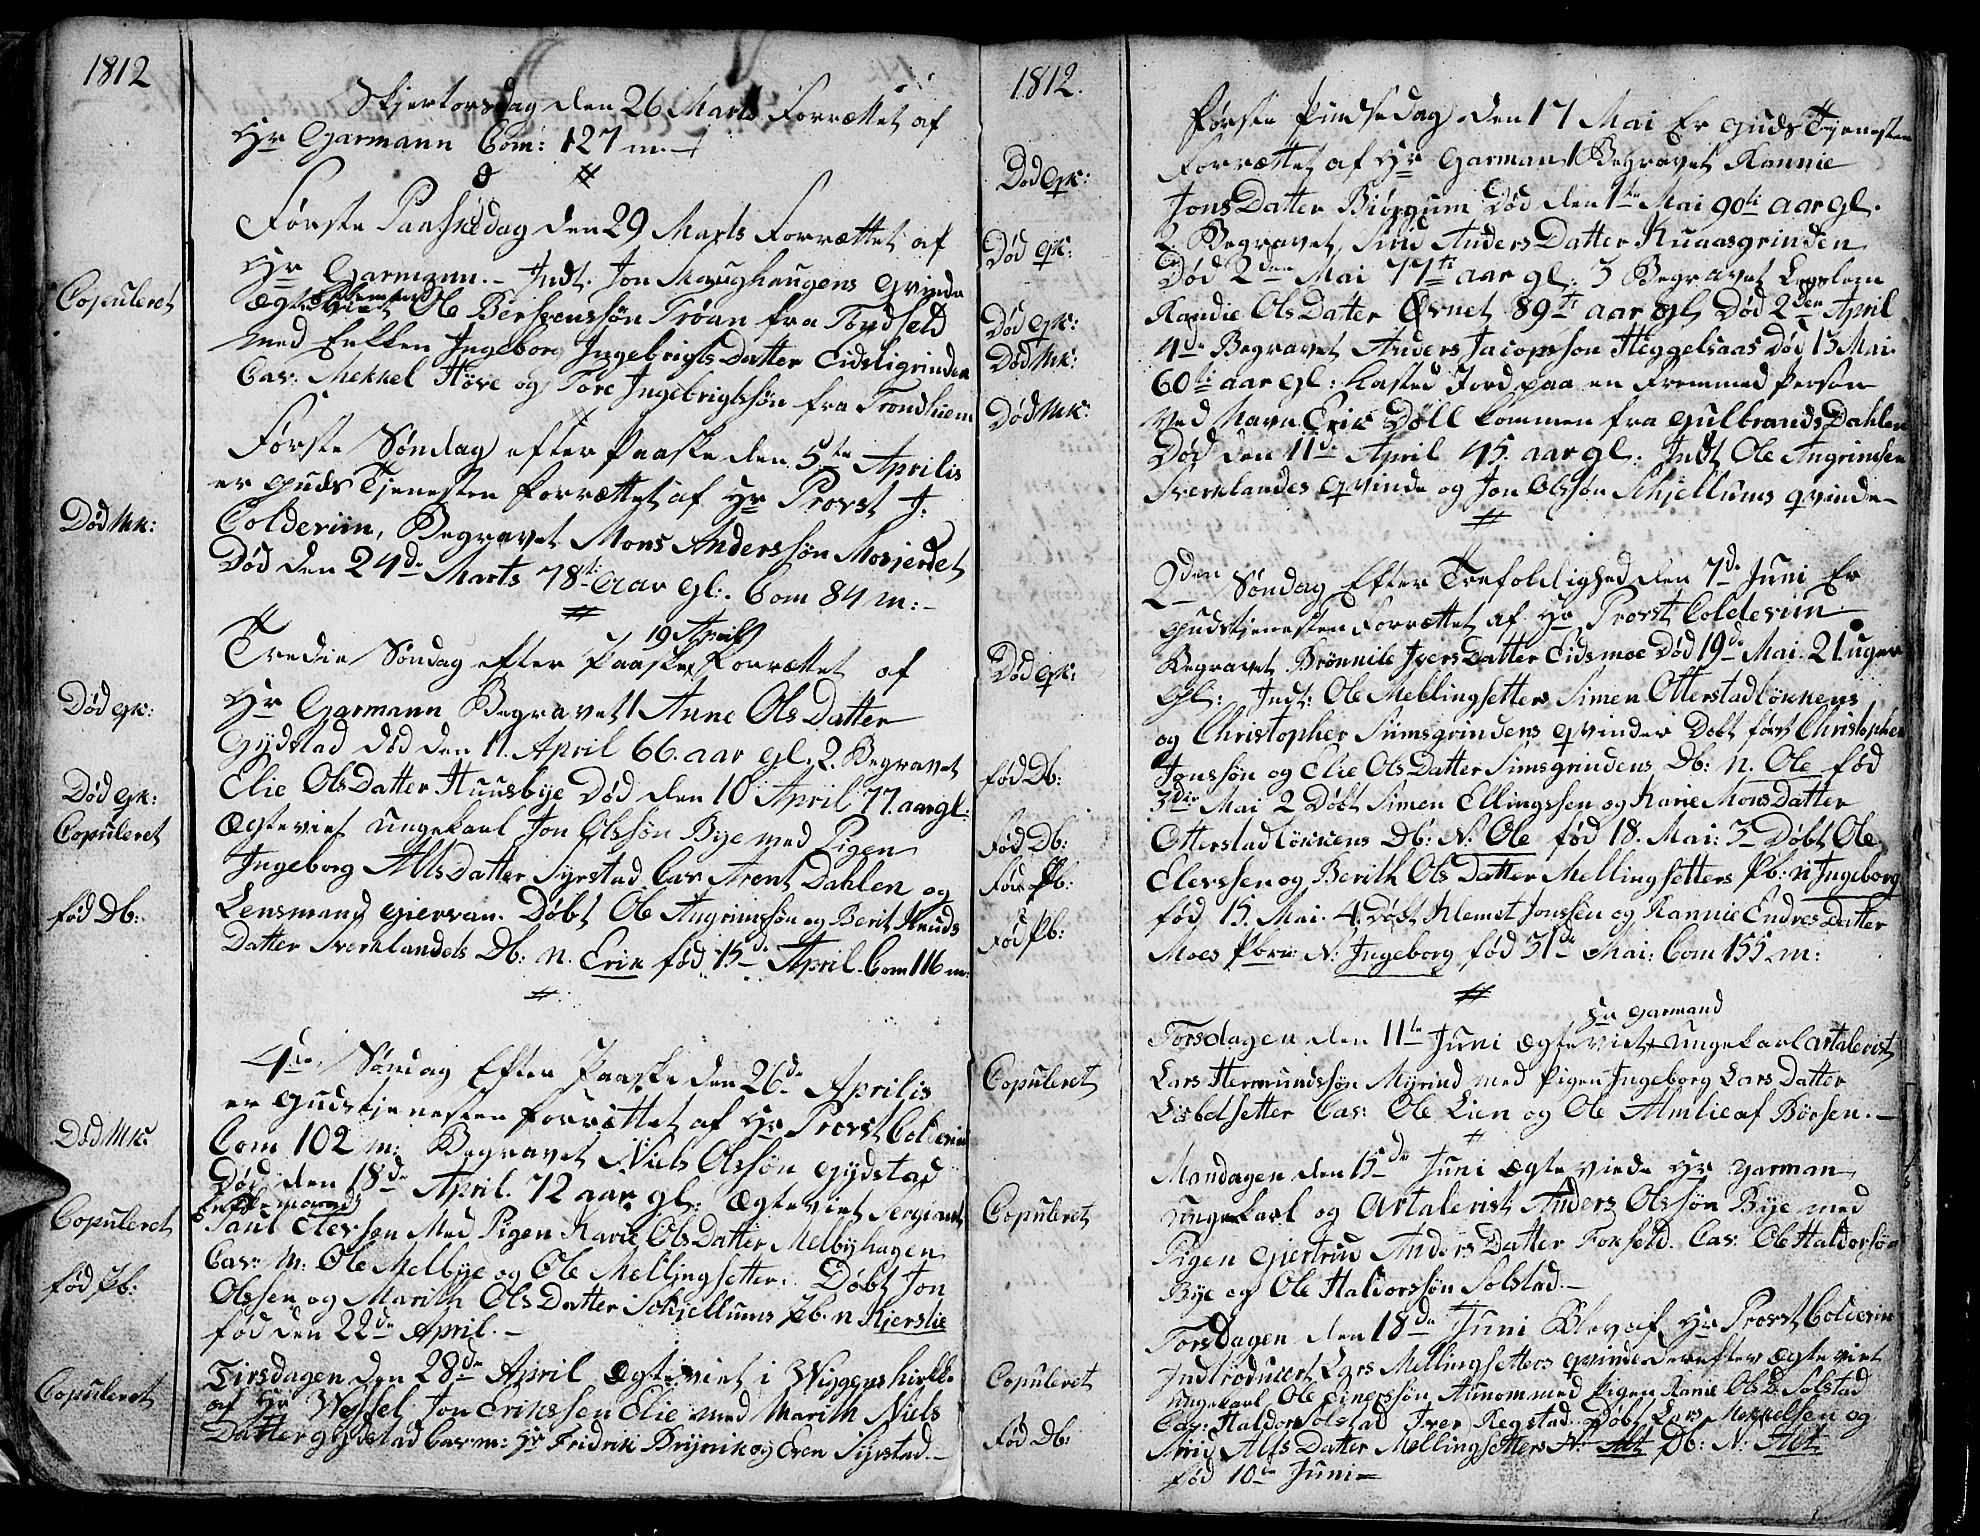 1812
Skjertorsdag den 26 Marts Forrættet af
Hr Garmann Com: 127 m.
Første Paaskedag den 29 Marts Forrættet af
Hr Garmann. Indt. Jon Maughaugens Qvinde
Copuleret
Ægteviet Ole Berssensön Tröan fra
med Enken Ingeborg Ingebrigts Datter Eidsligrinden
Cav: Mekkel Höve og Tore Ingebrigtssön fra Trondhiem
Første Søndag efter Paaske den 5te Aprilis
er Guds Tjenesten forrættet af Hr Provst J:
Død Mk:
Colderiin, Begravet Mons Anderssön Mosjerdet
Død den 24de Marts 78ti Aar gl: Com 84 m:
19 April
Tredie Søndag efter Paaske Forrættet af
Død Qk:
Hr Garmann Begravet 1 Anne Ols Datter
Gydstad død den 11. April 66. aar gl. 2. Begravet
Død Qk:
Elie Ols Datter Huusbye Død den 10 April 77. aar gl:
Copuleret
Ægteviet ungekarl Jon Olssön Bye med Pigen
Ingeborg Alts Datter Syrstad Cav Arent Dahlen og
fød Db:
Lensmand Giervan. Døbt Ole Angrimssön og Berit Knuds
Datter Sverklandets Db: N. Erik fød 15de April. Com 116 m:
4de Søndag Efter Paaske den 26de Aprilis
er Gudstjenesten forrættet af Hr Provst Colderiin
Død Mk:
Com 102 m: Begravet Niels Olssön Gydstad
Død den 18de April. 72 aar gl: Ægteviet Sergiant
Copuleret
Enkemand
Paul Elevsen Med Pigen Karie Ols Datter Melbyhagen
Cav: M: Ole Melbye og Ole Mellingsetter. Døbt Jon
fød Pb:
Olssen og Marith Ols Datter Schjellums Pb. n Kjerstie
fød den 22de April.
Tirsdagen den 28de April Ægteviet i Wiggens kirke
Copuleret
af Hr Wessel Jon Erikssen Elie med Marith Niels
Datter Gydstad Cav m: Hr Fridrik Brynik og Even Syrstad.
1812.
Første Pindsedag den 17 Mai Er Guds Tjenesten
Død Qk:
Forrættet af Hr Garman 1 Begravet Rannie
Jons Datter Biörgum Død den 1te Mai 90ti aar gl.
Død Qk:
2. Begravet Siri Anders Datter Kuaasgrinden
Død 2den Mai 77ti aar gl: 3 Begravet Loslem
Død Qk:
Randie Ols Datter Øvnet 89ti aar gl. Død 2den April
Død Mk:
4de Begravet Anders Jacopssön Heggelsaas Død 13 Mai
60ti aar gl: Kasted Jord paa en Fremmed Person
Død Mk:
ved Navn Eric Döll kommen fra Gulbrands Dahlen
Død den 11de April 45. aar gl: Indt Ole Angrimsen
Sverklandes Qvinde og Jon Olssön Schjellums Qvinde
2den Søndag Efter Trefoldighed den 7de Juni Er
Gudstjenesten Forrættet af Hr Provst Colderiin
Død Qk:
Begravet Brönnile Ivers Datter Eidsmoe Død 19de Mai. 21 uger
Gl: Indt: Ole Mellingsetters Simen Otterstadlökkens
og Christopher Simsgrindens Qvinder Døbt først Christopher
fød Db:
Jonssön og Elie Ols Datter Simsgrindens Db: N. Ole fød
3die Mai 2 Døbt Simen Ellingssen og Karie Mons Datter
Fød Db:
Otterstadlökkens Db: N: Ole fød 18. Mai: 3 Døbt Ole
Fød Pb:
Elevssen og Berith Ols Datter Mellingsetters Pb: n Ingeborg
Fød Pb:
fød 15. Mai. 4. Døbt Klemet Jonssön og Rannie Endres Datter
Moes Pbrn: N: Ingeborg fød 31de Mai: Com 155. m:
Hr Garmand
Torsdagen den 11te Juni Ægteviet Ungekarl Artalerist
Copuleret
Lars Hermundssön Myrind med Pigen Ingeborg Lars Datter
Lisbetsetter Cav: Ole Lien og Ole Almlie af Börsen.
Mandagen den 15de Juni Ægteviede Hr Garman
Copuleret
ungekarl og Artalerist Anders Olssön Bye med
Pigen Giertrud Anders Datter Foxseld. Cav: Ole Haldorsön
Bye og Ole Haldorssön Solstad.
Torsdagen den 18de Juni Blev af Hr Provst Colderiin
Indtroducert Lars Mellingsetters Qvinde derefter Ægteviet
Copuleret
ungekarl Ole Einerssön Aunom med Pigen Ranie Ols D. Solstad
Cav: Haldor Solstad Iver Regstad. Døbt Lars Mekkelsen og
Fød Db:
Siri Alts Datter Mellingsetters N: Alt Db: N: Alt
fød 10de Juni